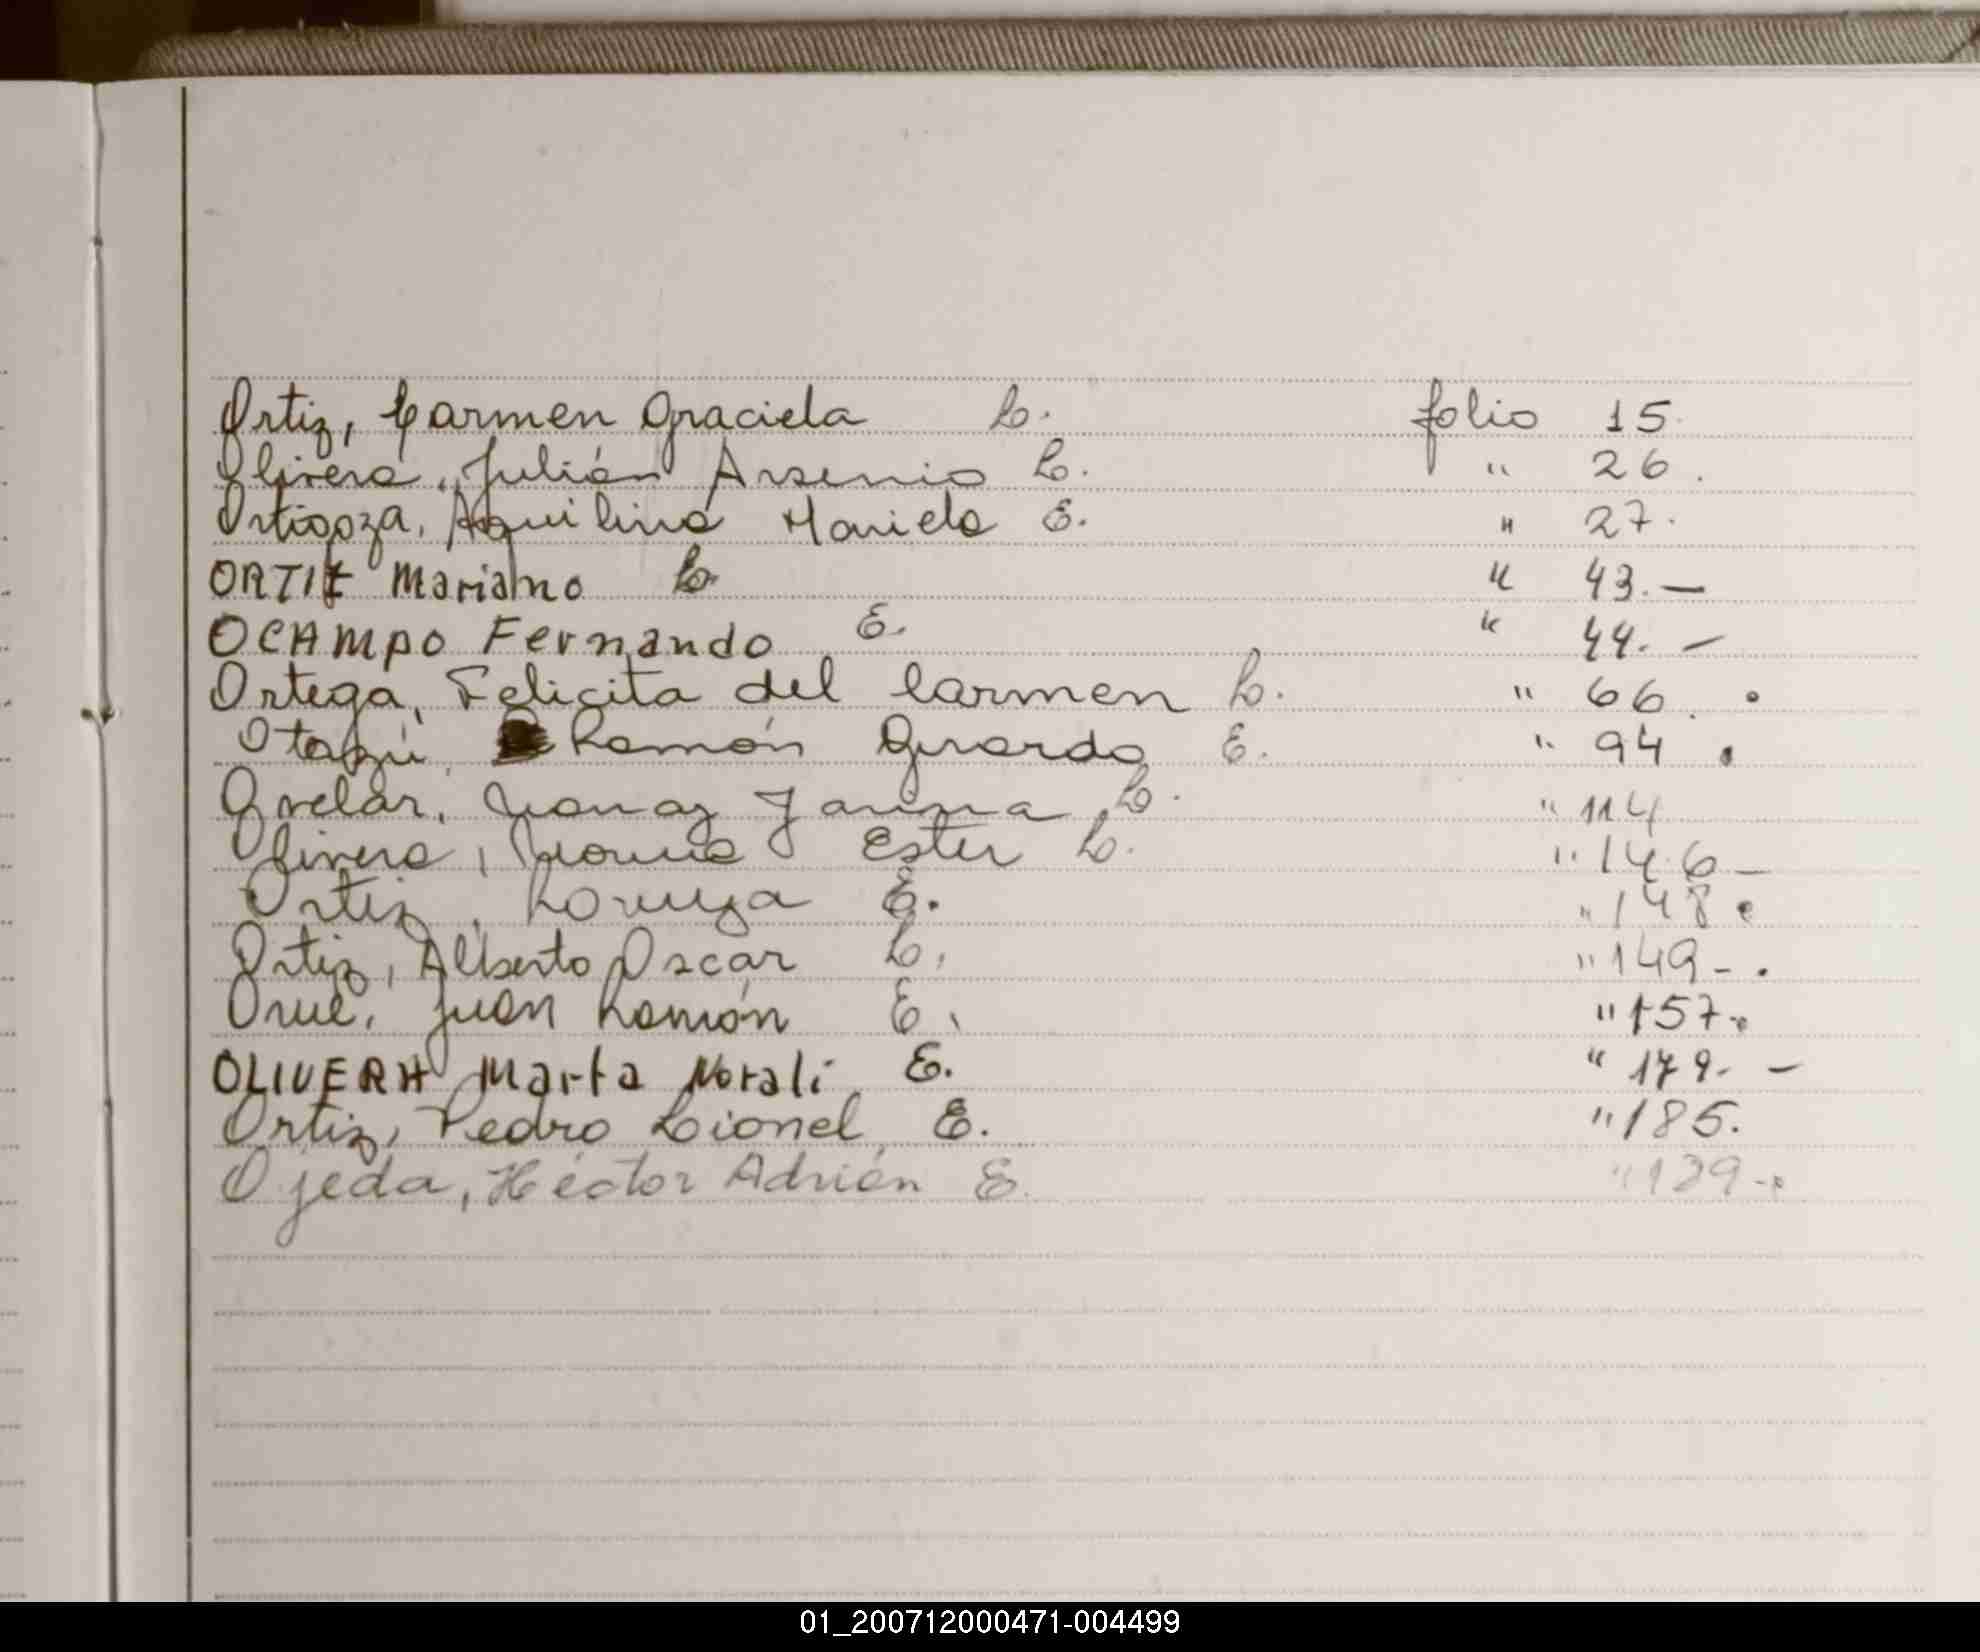 Ortiz, Carmen Graciela C. folio 15.
Olivera, Julián Arsenio C. " 26.
Ortigoza, Aquilina Mariela E. " 27.
ORTIZ Mariano C. " 43.-
OCAMPO Fernando E. " 44.-
Ortega, Felicita del Carmen C. " 66.
Otazú, Ramón Gerardo E. " 94.
Ovelar, C. " 114
Olivera, Ester C. " 146-
Ortiz, E. " 148.
Ortiz, Alberto Oscar C. " 149-.
Orué, Juan Ramón E. " 157-
OLIVERA Marta Norali E. " 179.-
Ortiz, Pedro Lionel E. " 185.
Ojeda, Héctor Adrián E. "
01_200712000471-004499